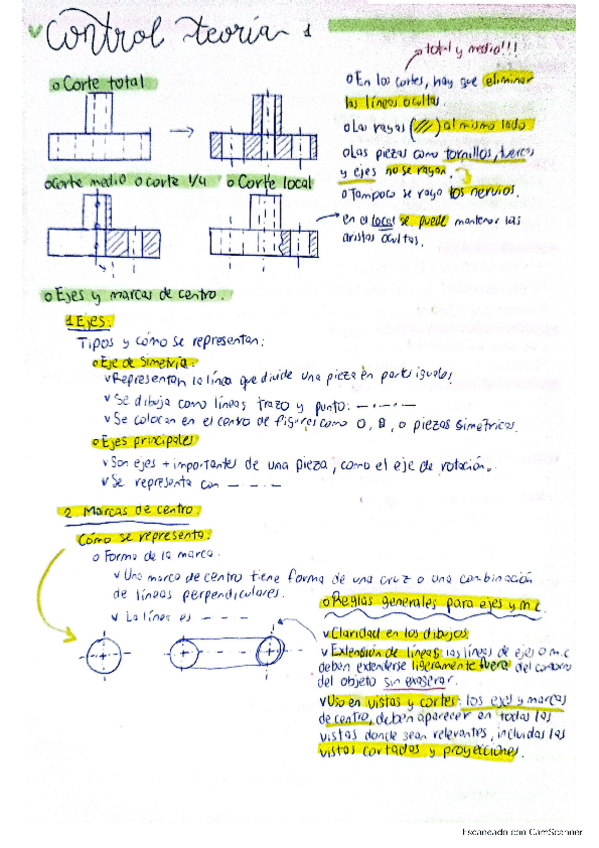 Control teoría 1
total y medio!!!
o Corte total
o En los cortes, hay que eliminar
las líneas ocultas.
o Las rayas (///) al mismo lado
o Las piezas como tornillos, tuercas
y ejes no se rayan.
o Tampoco se raya los nervios.
o Corte medio o corte 1/4
o Corte local
en el local se puede mantener las
aristas ocultas.
o Ejes y marcas de centro.
1. Ejes:
Tipos y cómo se representan:
o Eje de simetría:
v Representan la línea que divide una pieza en parts iguales
v Se dibuja como líneas trazo y punto: — · — · —
v Se colocan en el centro de figuras como O, o piezas simetricas.
o Ejes principales
v Son ejes + importantes de una pieza, como el eje de rotación.
v Se representa con — — · —
2. Marcas de centro:
Cómo se representa:
o Forma de la marca.
v Una marca de centro tiene forma de una cruz o una combinación
de líneas perpendiculares.
v La línea es — — —
o Reglas generales para ejes y m.c
v Claridad en los dibujos
v Extensión de líneas: las líneas de ejes o m.c
deben extenderse ligeramente fuera del contorno
del objeto sin exagerar.
v Uso en vistas y cortes: los ejes y marcas
de centro, deben aparecer en todas las
vistas donde sean relevantes, incluidas las
vistas cortadas y proyecciones.
Escaneado con CamScanner